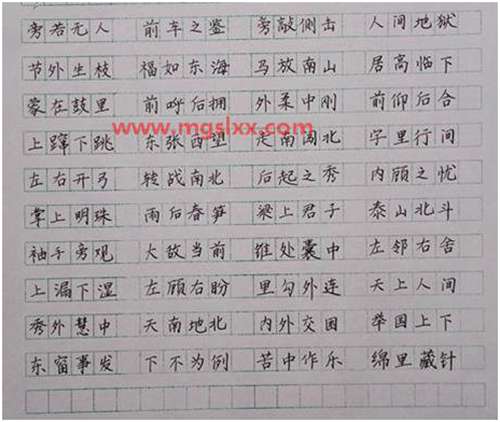 旁若无人 前车之鉴 旁敲侧击 人间地狱
节外生枝 福如东海 马放南山 居高临下
蒙在鼓里 前呼后拥 外柔中刚 前仰后合
www.mgslxx.com
上蹿下跳 东张西望 走南闯北 字里行间
左右开弓 转战南北 后起之秀 内顾之忧
掌上明珠 雨后春笋 梁上君子 泰山北斗
袖手旁观 大敌当前 锥处囊中 左邻右舍
上漏下湿 左顾右盼 里勾外连 天上人间
秀外慧中 天南地北 内外交困 举国上下
东窗事发 下不为例 苦中作乐 绵里藏针